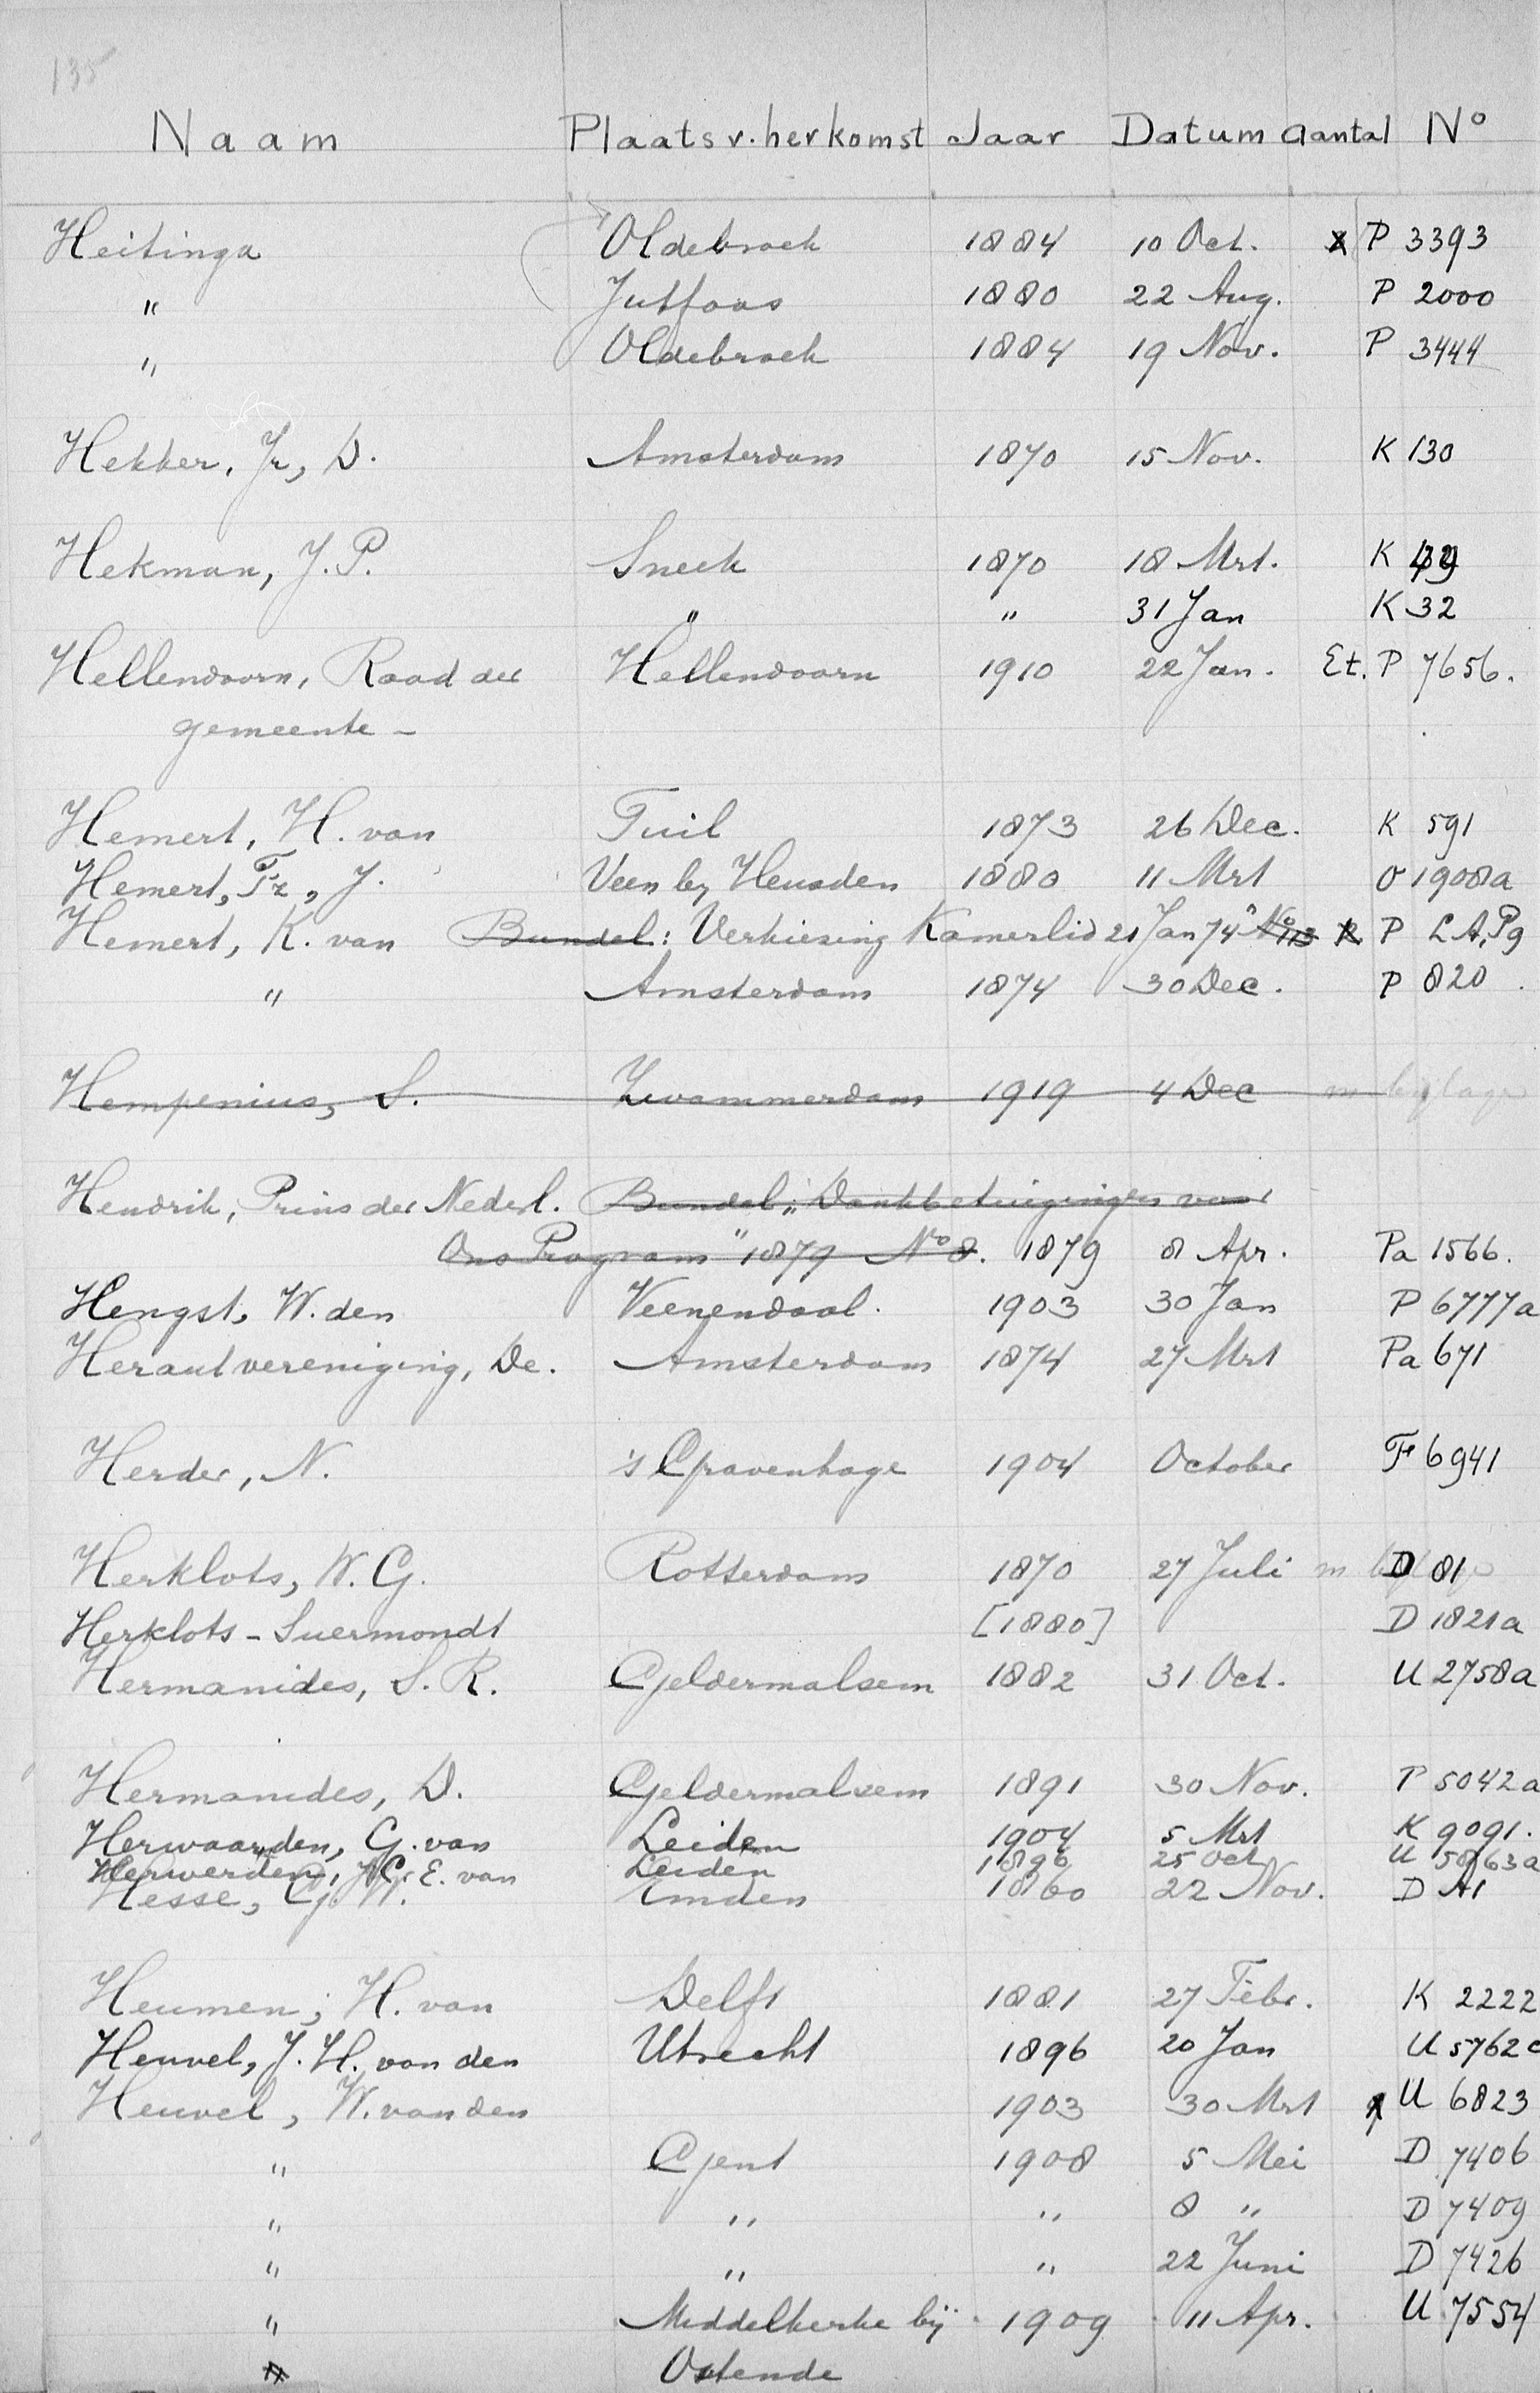 135
Naam Plaats v. herkomst Jaar Datum aantal No
Heitinga Oldebroek 1884 10 Oct. P 3393
" Jutfaas 1880 22 Aug. P 2000
" Oldebroek 1884 19 Nov. P 3444
Hekker, Jr, D. Amsterdam 1870 15 Nov. K 130
Hekman, J. P. Sneek 1870 18 Mrt. K
" " 31 Jan K 32
Hellendoorn, Raad der Hellendoorn 1910 22 Jan. Et. P 7656.
gemeente -
Hemert, H. van Tuil 1873 26 Dec. K 591
Hemert, Fz, J. Veen by Heusden 1880 11 Mrt O 1908a
Hemert, K. van Bundel: Verkiesing Kamerlid 21 Jan 74" No P LA, Pg
" Amsterdam 1874 30 Dec. P 820.
Hempenius, S. Zwammerdam 1919 4 Dec m bijlage
Hendrik, Prins der Nederl. Bundel „Dankbetuigingen voor
Ons Program" 1879 No 8. 1879 8 Apr. Pa 1566.
Hengst, W. den Veenendaal. 1903 30 Jan P 6777a
Herautvereniging, De. Amsterdam 1874 27 Mrt Pa 671
Herder, N. 's Gravenhage 1904 October F 6941
Herklots, W. G. Rotterdam 1870 27 Juli m D 81
Herklots - Suermondt [1880] D 1821a
Hermanides, S. R. Geldermalsem 1882 31 Oct. U 2758a
Hermanides, D. Geldermalsem 1891 30 Nov. P 5042a
Herwaarden, G. van Leiden 1904 5 Mrt K 9091.
Herwerden, J. C. E. van Leiden 1896 25 oct U 5863a
Hesse, G. W. Emden 1860 22 Nov. D A1
Heumen, H. van Delft 1881 27 Febr. K 2222
Heuvel, J. H. van den Utrecht 1896 20 Jan U 5762c
Heuvel, W. van den 1903 30 Mrt U 6823
" Gent 1908 5 Mei D 7406
" " " 8 " D 7409
" " " 22 Juni D 7426
" Middelkerke bij 1909 11 Apr. U 7554
Ostende